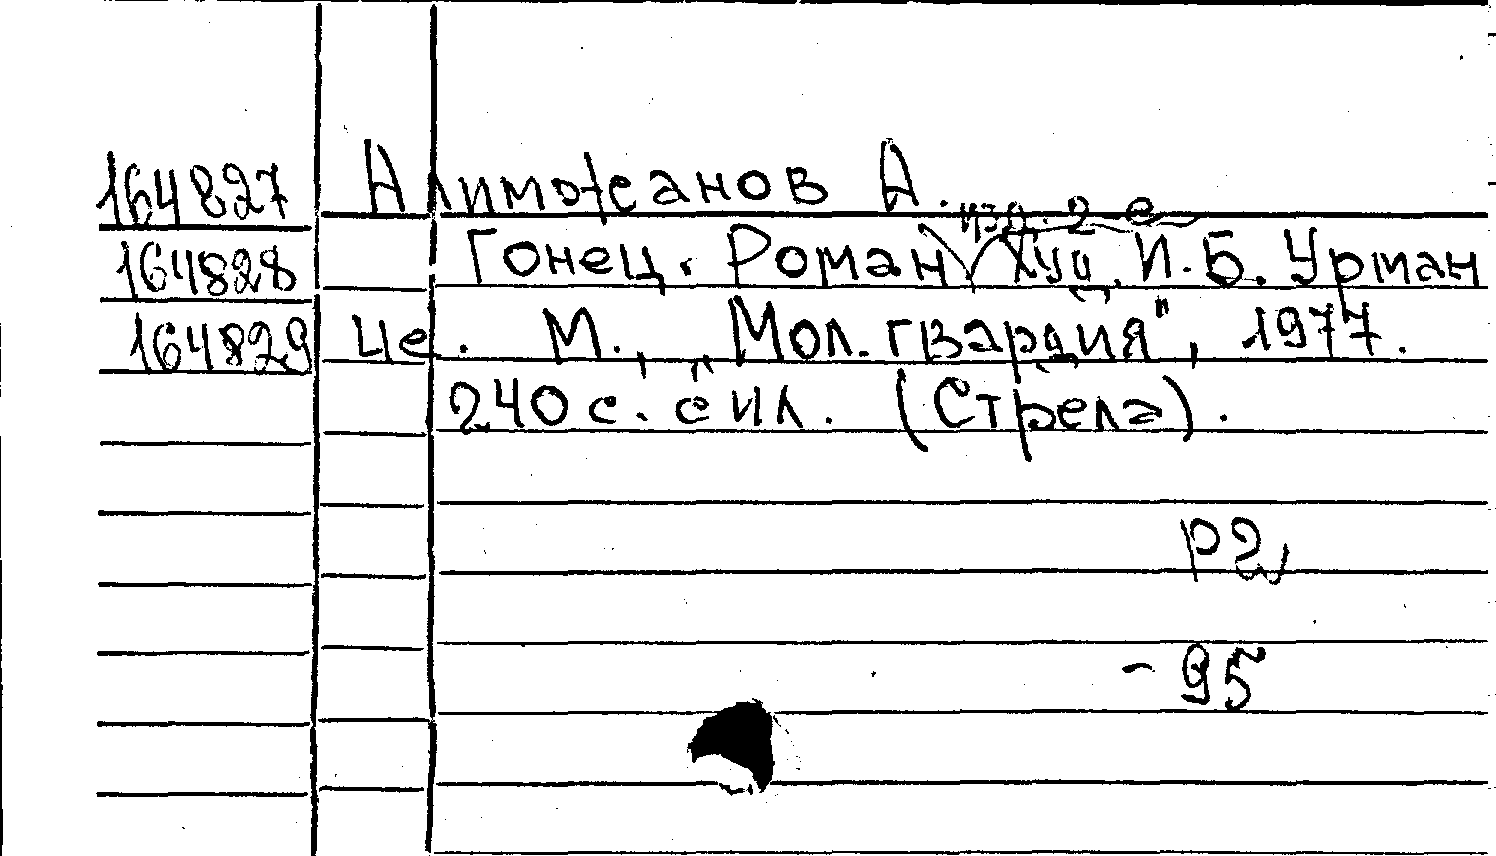 164827 Алимжанов А.
изд. 2-е
164828 Гонец. Роман √ Худ. И.Б. Урман
164829 Це. М., „Мол. гвардия", 1977.
240 с. с ил. (Стрела).
р2
-95